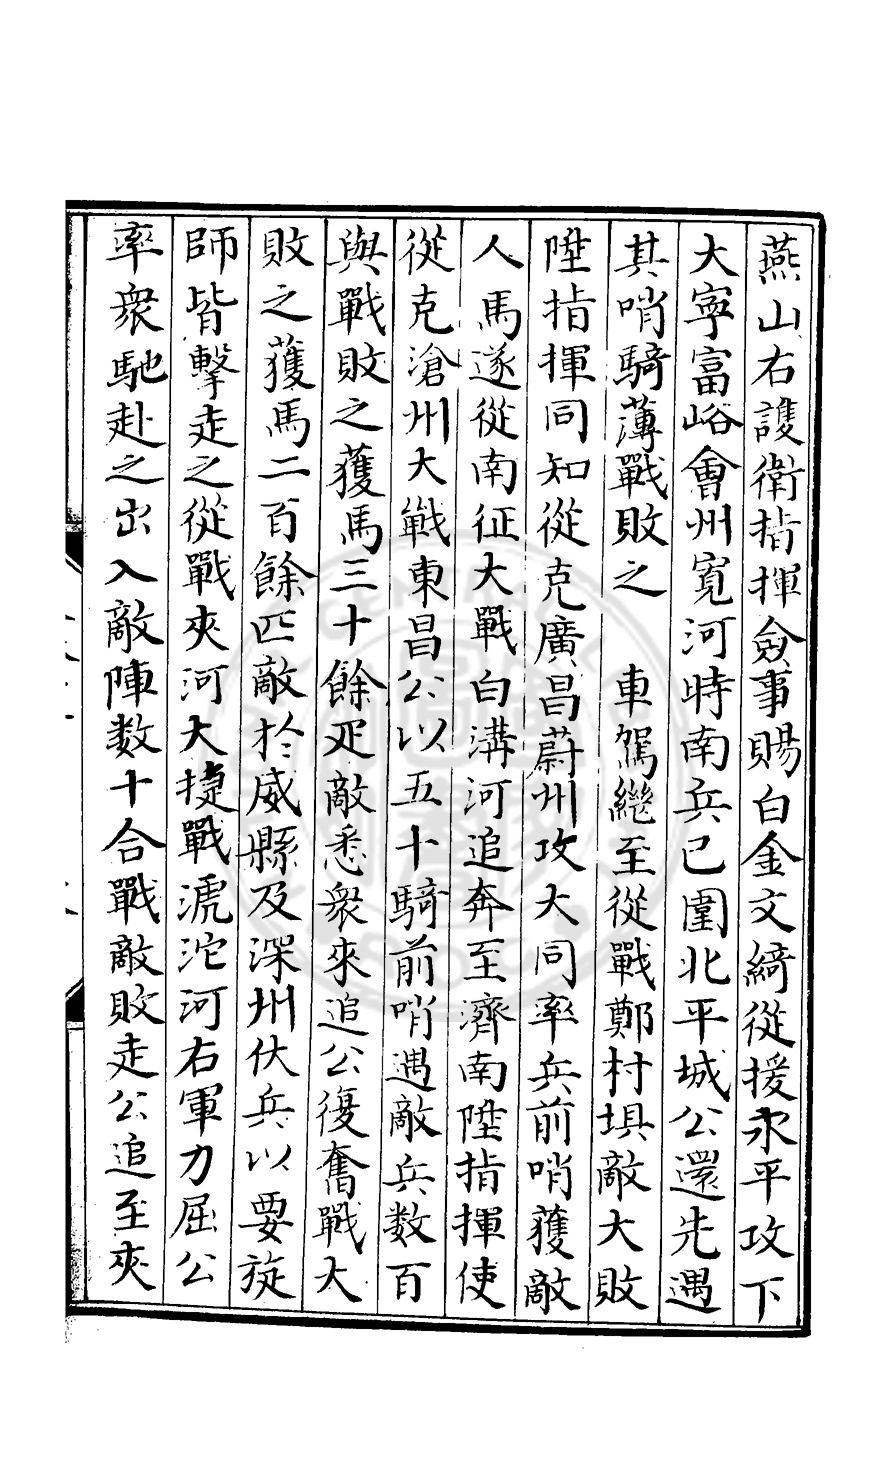 燕山右護衛指揮僉事賜白金文綺從援永平攻下
大寧富峪會州寬河時南兵已圍北平城公還先遇
其哨騎薄戰敗之　車駕繼至從戰鄭村埧敵大敗
陞指揮同知從克廣昌蔚州攻大同率兵前哨獲敵
人馬遂從南征大戰白溝河追奔至濟南陞指揮使
從克滄州大戰東昌公以五十騎前哨遇敵兵数百
與戰敗之獲馬三十餘疋敵悉衆來追公復奮戰大
敗之獲馬二百餘匹敵於威縣及深州伏兵以要旋
師皆擊走之從戰夾河大捷戰滹沱河右軍力屈公
率衆馳赴之出入敵陣数十合戰敵敗走公追至夾